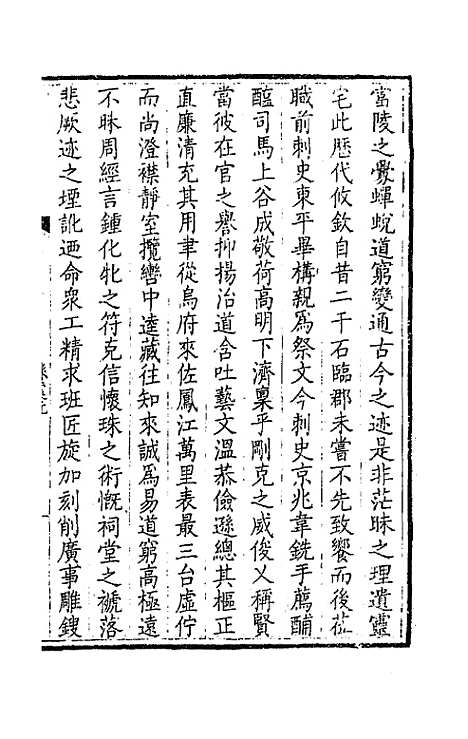 富陵之釁蟬蛻道窮變通古今之迹是非茫昧之理遺靈
宅此歷代攸欽自昔二千石臨郡未嘗不先致饗而後莅
職前刺史東平畢構親爲祭文今刺史京兆韋銑手薦酺
醢司馬上谷成敬荷高明下濟稟乎剛克之威俊乂稱賢
當彼在官之譽抑揚治道含吐藝文溫恭儉遜總其樞正
直廉清充其用聿從烏府來佐鳳江萬里表最三台虛佇
而尚澄襟靜室攬轡中逵藏往知來誠爲易道窮高極遠
不昧周經言鍾化牝之符克信懷珠之術慨祠堂之褫落
悲厥迹之堙訛迺命衆工精求班匠旋加刻削廣事雕鎪